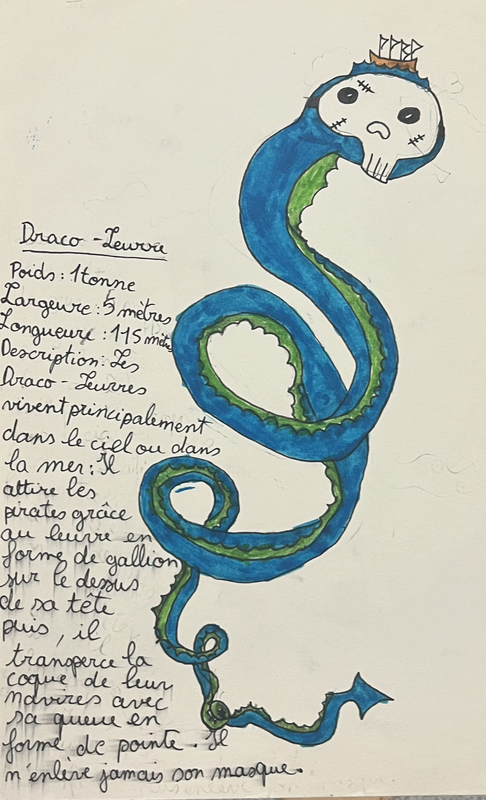 Draco - Leurre
Poids : 1 tonne
Largeure : 5 mètres
Longueure : 115 mètres
Description : Les
Draco - Leurres
vivent principalement
dans le ciel ou dans
la mer. Il
attire les
pirates grâce
au leurre en
forme de gallion
sur le dessus
de sa tête
puis, il
transperce la
coque de leur
navires avec
sa queue en
forme de pointe. Il
n'enlève jamais son masque.